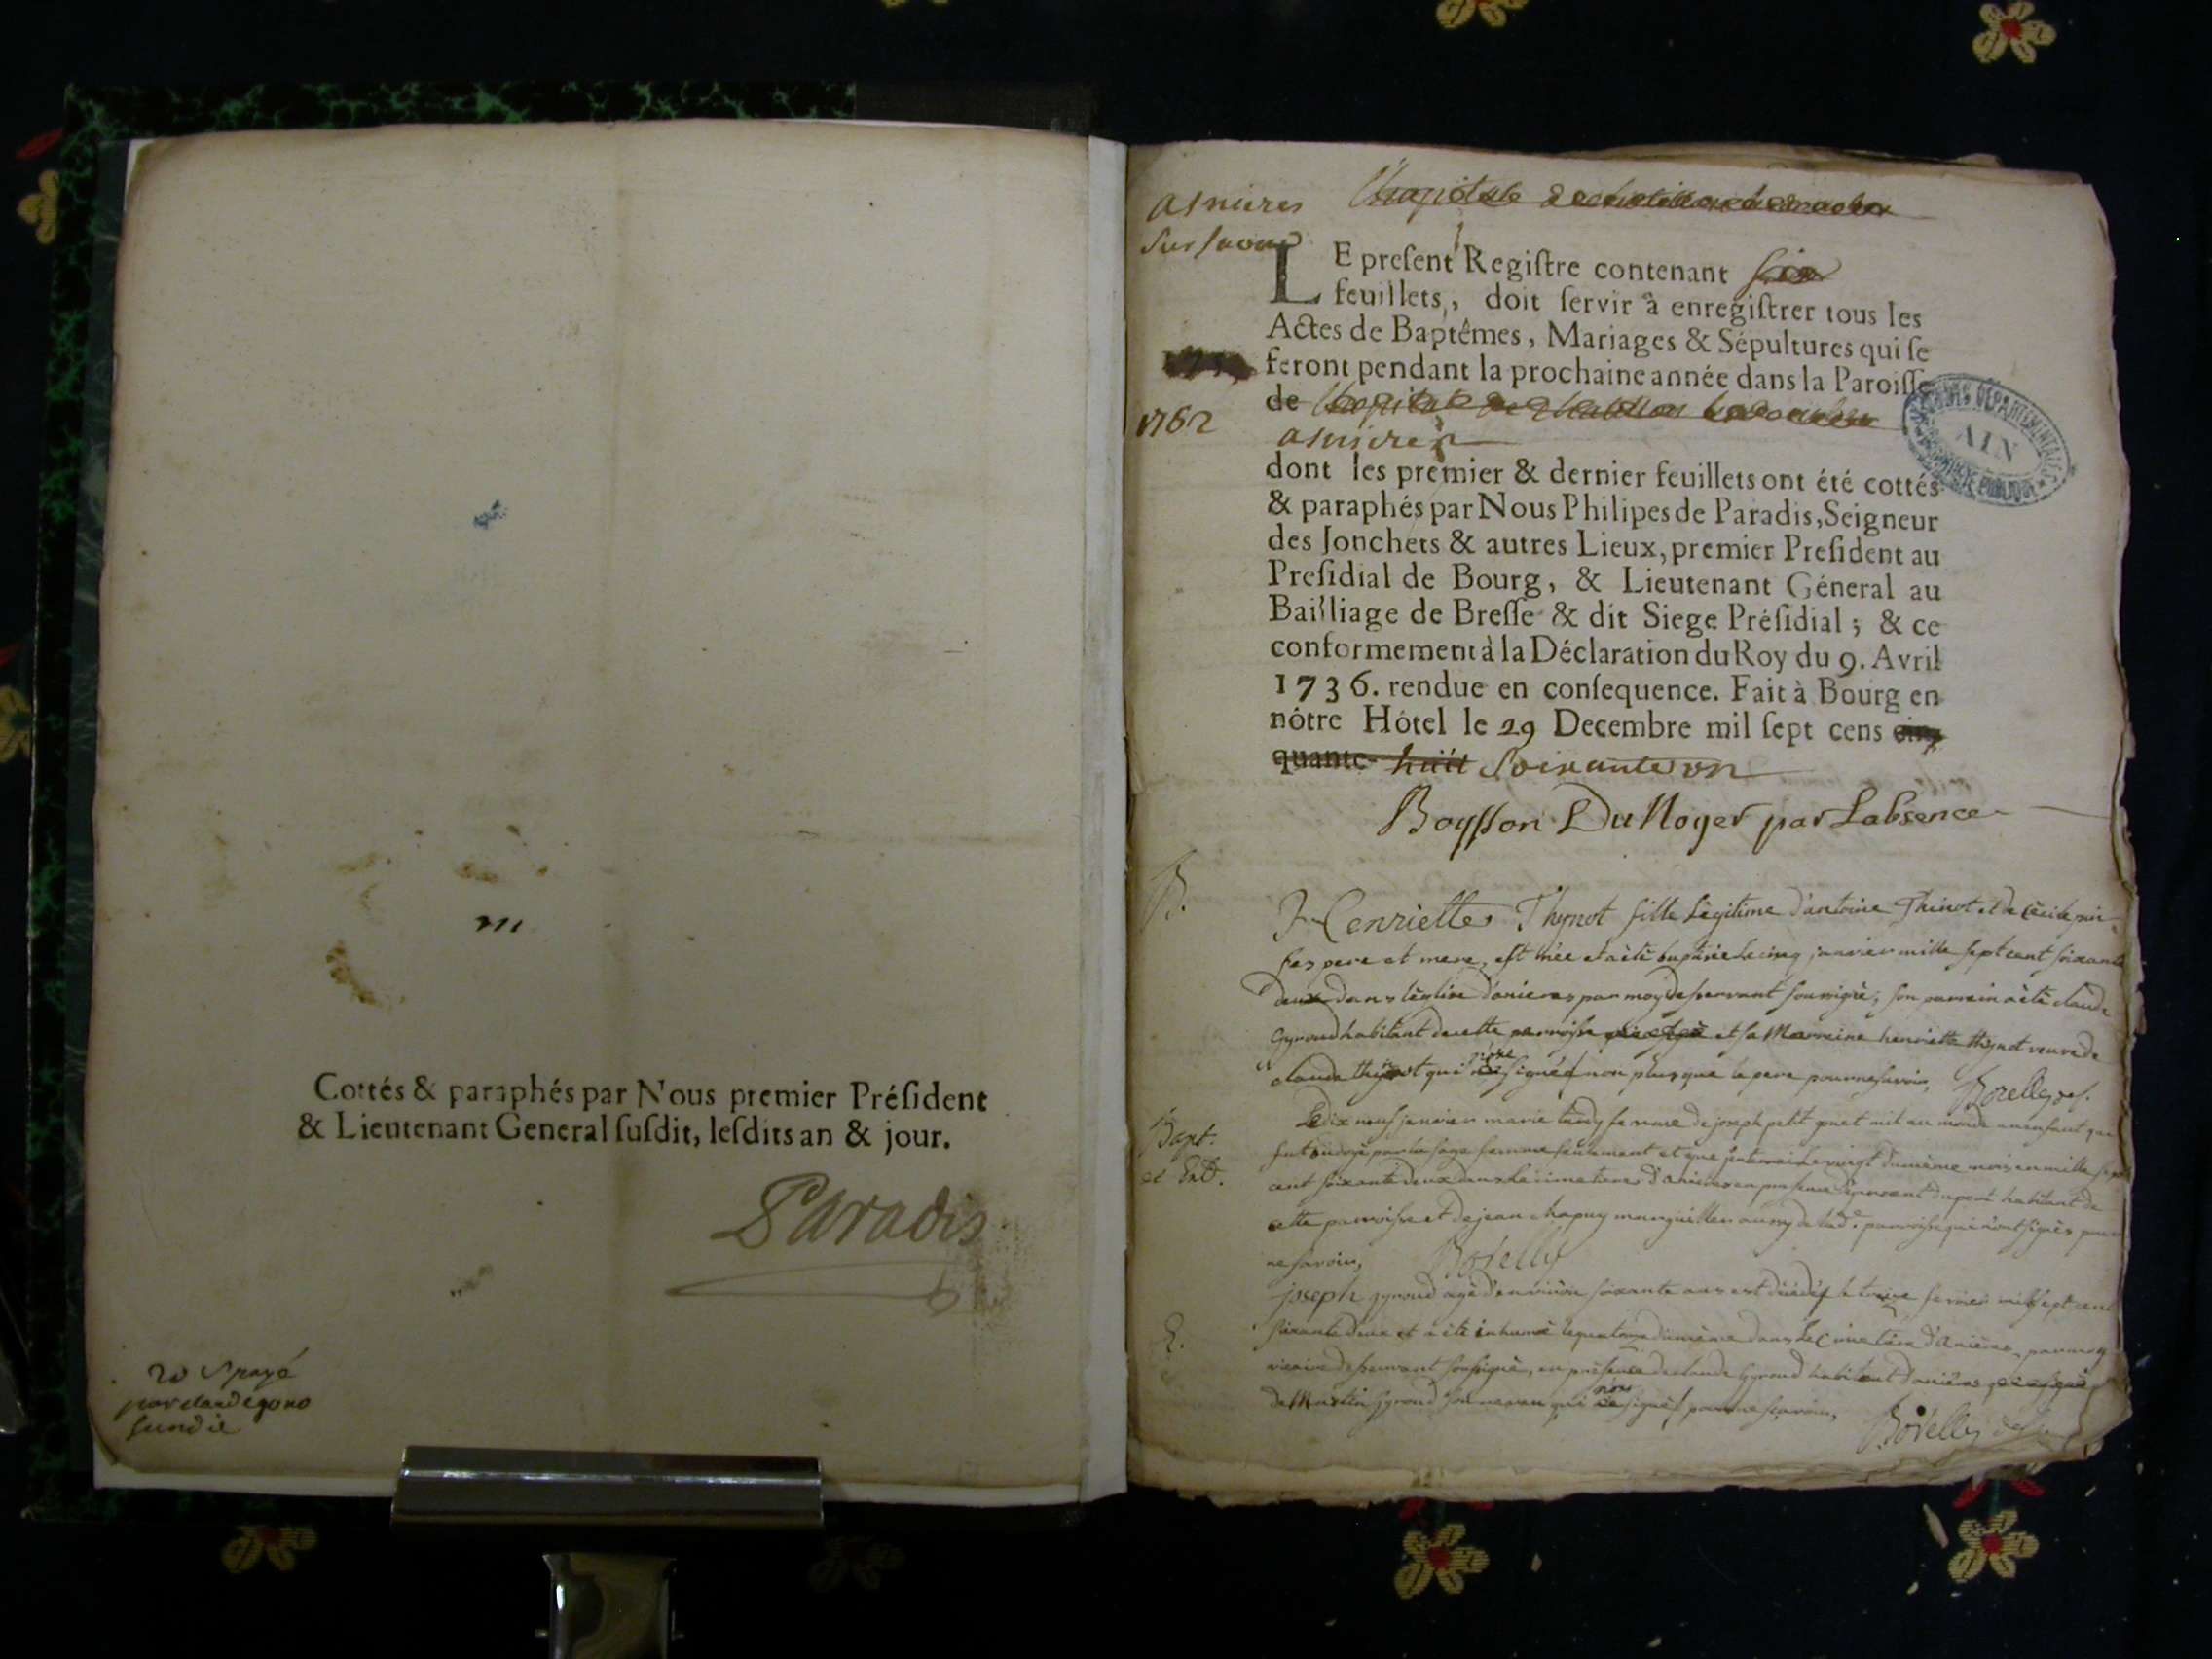 Cottés & paraphés par Nous premier Préſident
& Lieutenant General ſuſdit, leſdits an & jour.
Paradis
payé
par claude
asnieres
sur
LE preſent Regiſtre contenant six
feuillets, doit ſervir à enregiſtrer tous les
Actes de Baptêmes, Mariages & Sépultures qui ſe
feront pendant la prochaine année dans la Paroiſſe
de
1762
asnieres
dont les premier & dernier feuillets ont été cottés
& paraphés par Nous Philipes de Paradis, Seigneur
des Jonchets & autres Lieux, premier Preſident au
Preſidial de Bourg, & Lieutenant Géneral au
Bailliage de Breſſe & dit Siege Préſidial ; & ce
conformement à la Déclaration du Roy du 9. Avril
1736. rendue en conſequence. Fait à Bourg en
nôtre Hôtel le 29 Decembre mil ſept cens cin
quante-huit Soixante un
AIN
Boysson Du Noyer par Labsence
B.
Henriette Thynot fille Légitime d'antoine Thinot et de Cécile
ses pere et mere, est née et a été baptisée Le cinq janvier mille sept cent soixante
deux dans l'église d'anieres par moy desservant soussigné, son parrein a été claude
Gyroud habitant de cette parroisse et sa Marreine henriette thynot veuve de
claude thynot qui n'ont signé non plus que le pere pour ne savoir, Borelly des.
Bapt.
et Ent.
Le dix neuf janvier marie tardy femme de joseph petit mit au monde un enfant qui
fut ondoyé par la sage femme seulement et que j'enterrai le vingt du même mois en mille sept
cent soixante deux dans le cimetiere d'anieres en presence dupont habitant de
cette parroisse et de jean chapuy marguiller aussy de lad. parroisse qui n'ont signés pour
ne savoir, Borelly
E.
joseph gyroud agé d'environ soixante ans est décédé le treize fevrier mil sept cent
soixante deux et a été inhumé le quatorze du même dans le Cimetiere d'Anieres, par moy
vicaire desservant soussigné, en présence de claude Gyroud habitant d'anieres
de Martin gyroud son neveu qui n'ont signés pour ne sçavoir,
Borelly